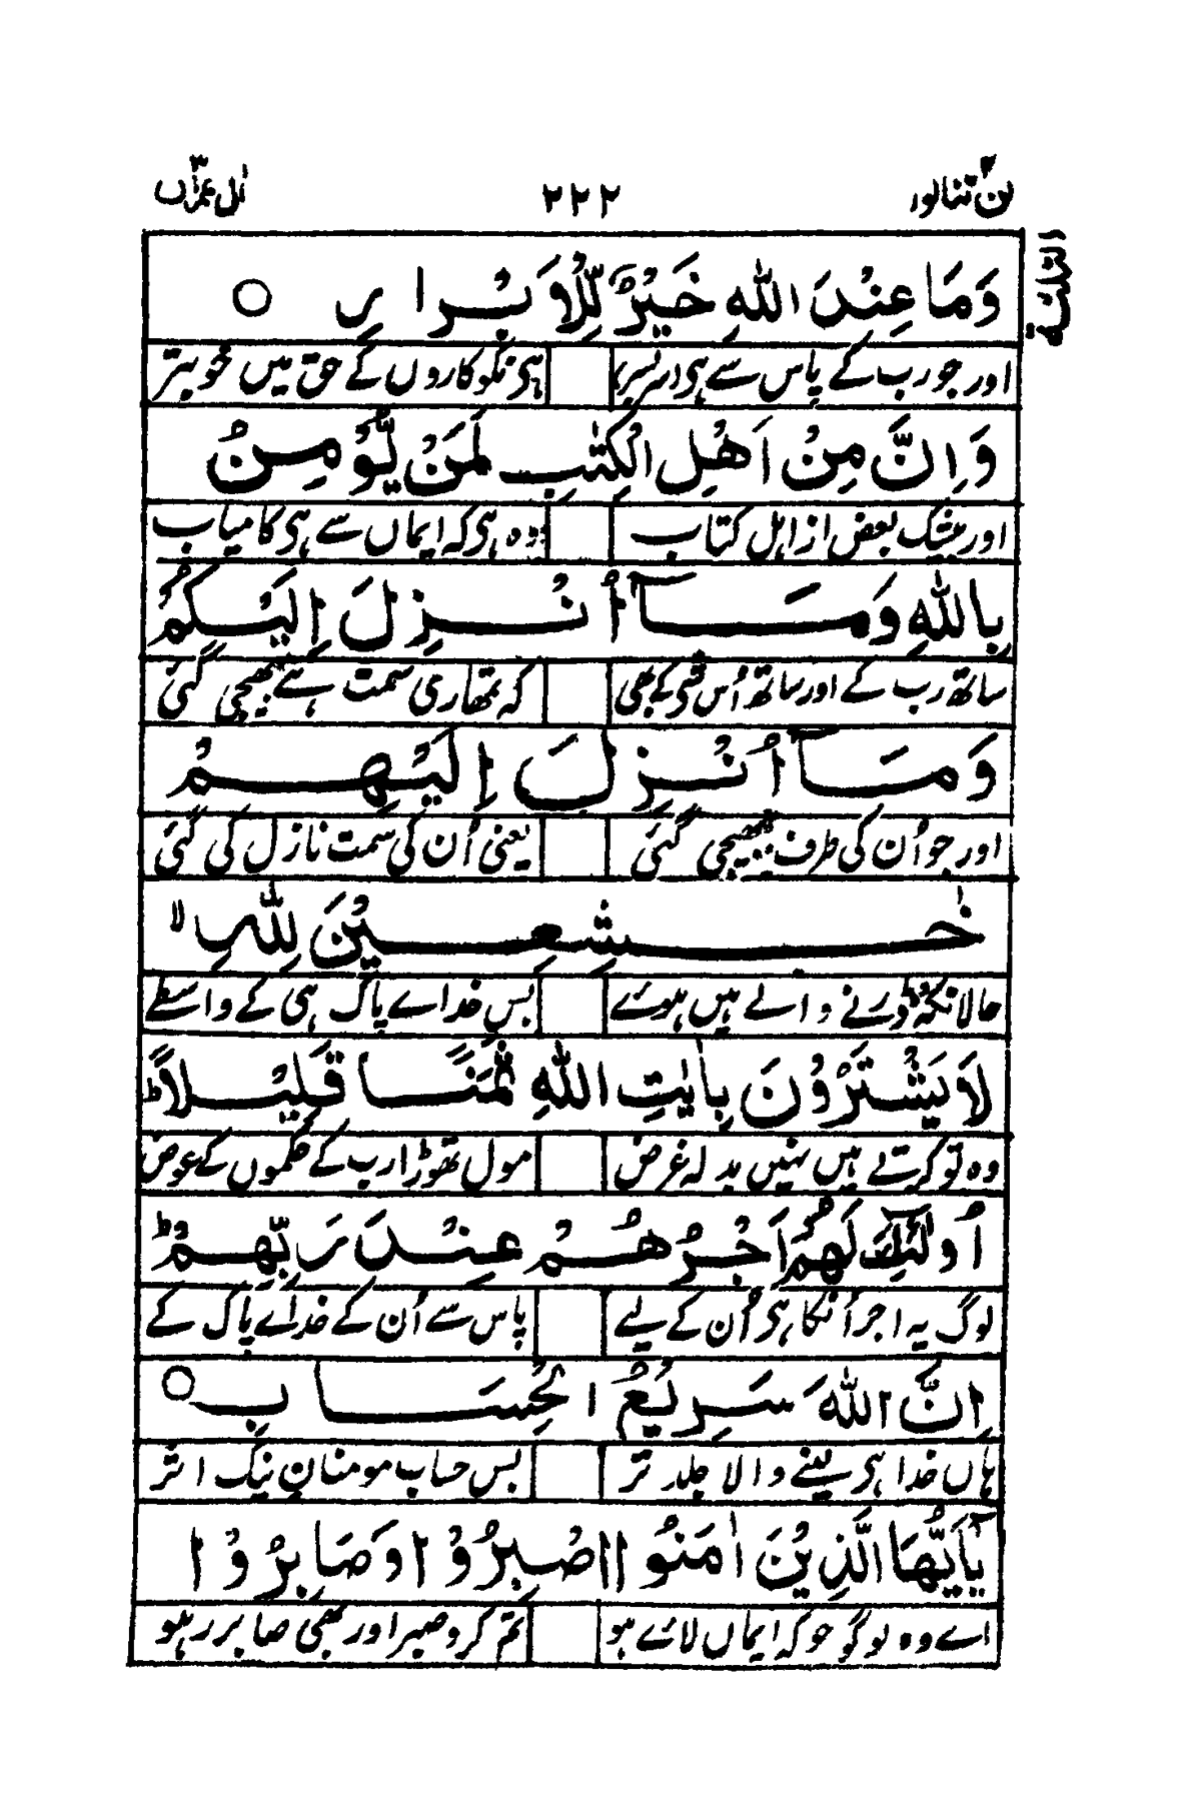 لن تنالوا ۴ ۲۲۲ اٰل عمرٰن ۳
وَمَا عِنْدَ اللّٰهِ خَيْرٌ لِّلْاَبْرَارِ ○
اور جو رب کے پاس سے ہی ہی نکوکاروں کے حق میں خوبتر
وَاِنَّ مِنْ اَهْلِ الْكِتٰبِ لَمَنْ يُّؤْمِنُ
اور بیشک بعض از اہل کتاب وہ ہی کہ ایماں سے ہی کامیاب
بِاللّٰهِ وَمَآ اُنْزِلَ اِلَيْكُمْ
ساتھ رب کے اور ساتھ اُس کے بھی کہ تمھاری سمت ہے بھیجی گئی
وَمَآ اُنْزِلَ اِلَيْهِمْ
اور جو اُن کی طرف بھیجی گئی یعنی اُن کی سمت نازل کی گئی
خٰشِعِيْنَ لِلّٰهِ ۙ
حالانکہ ڈرنے والے ہیں ہوے بس خداے پاک ہی کے واسطے
لَا يَشْتَرُوْنَ بِاٰيٰتِ اللّٰهِ ثَمَنًا قَلِيْلًا ؕ
وہ تو کرتے ہیں نہیں بدلہ غرض مول تھوڑا رب کے حکموں کے عوض
اُولٰٓئِكَ لَهُمْ اَجْرُهُمْ عِنْدَ رَبِّهِمْ ؕ
لوگ یہ اجر اُنکا ہی اُن کے لیے پاس سے اُن کے خداے پاک کے
اِنَّ اللّٰهَ سَرِيْعُ الْحِسَابِ ○
ہاں خدا ہی لینے والا جلد تر بس حساب مومنان نیک اثر
يٰٓاَيُّهَا الَّذِيْنَ اٰمَنُوا اصْبِرُوْا وَصَابِرُوْا
اے وہ لوگو جو کہ ایماں لاے ہو تم کرو صبر اور بھی صابر رہو